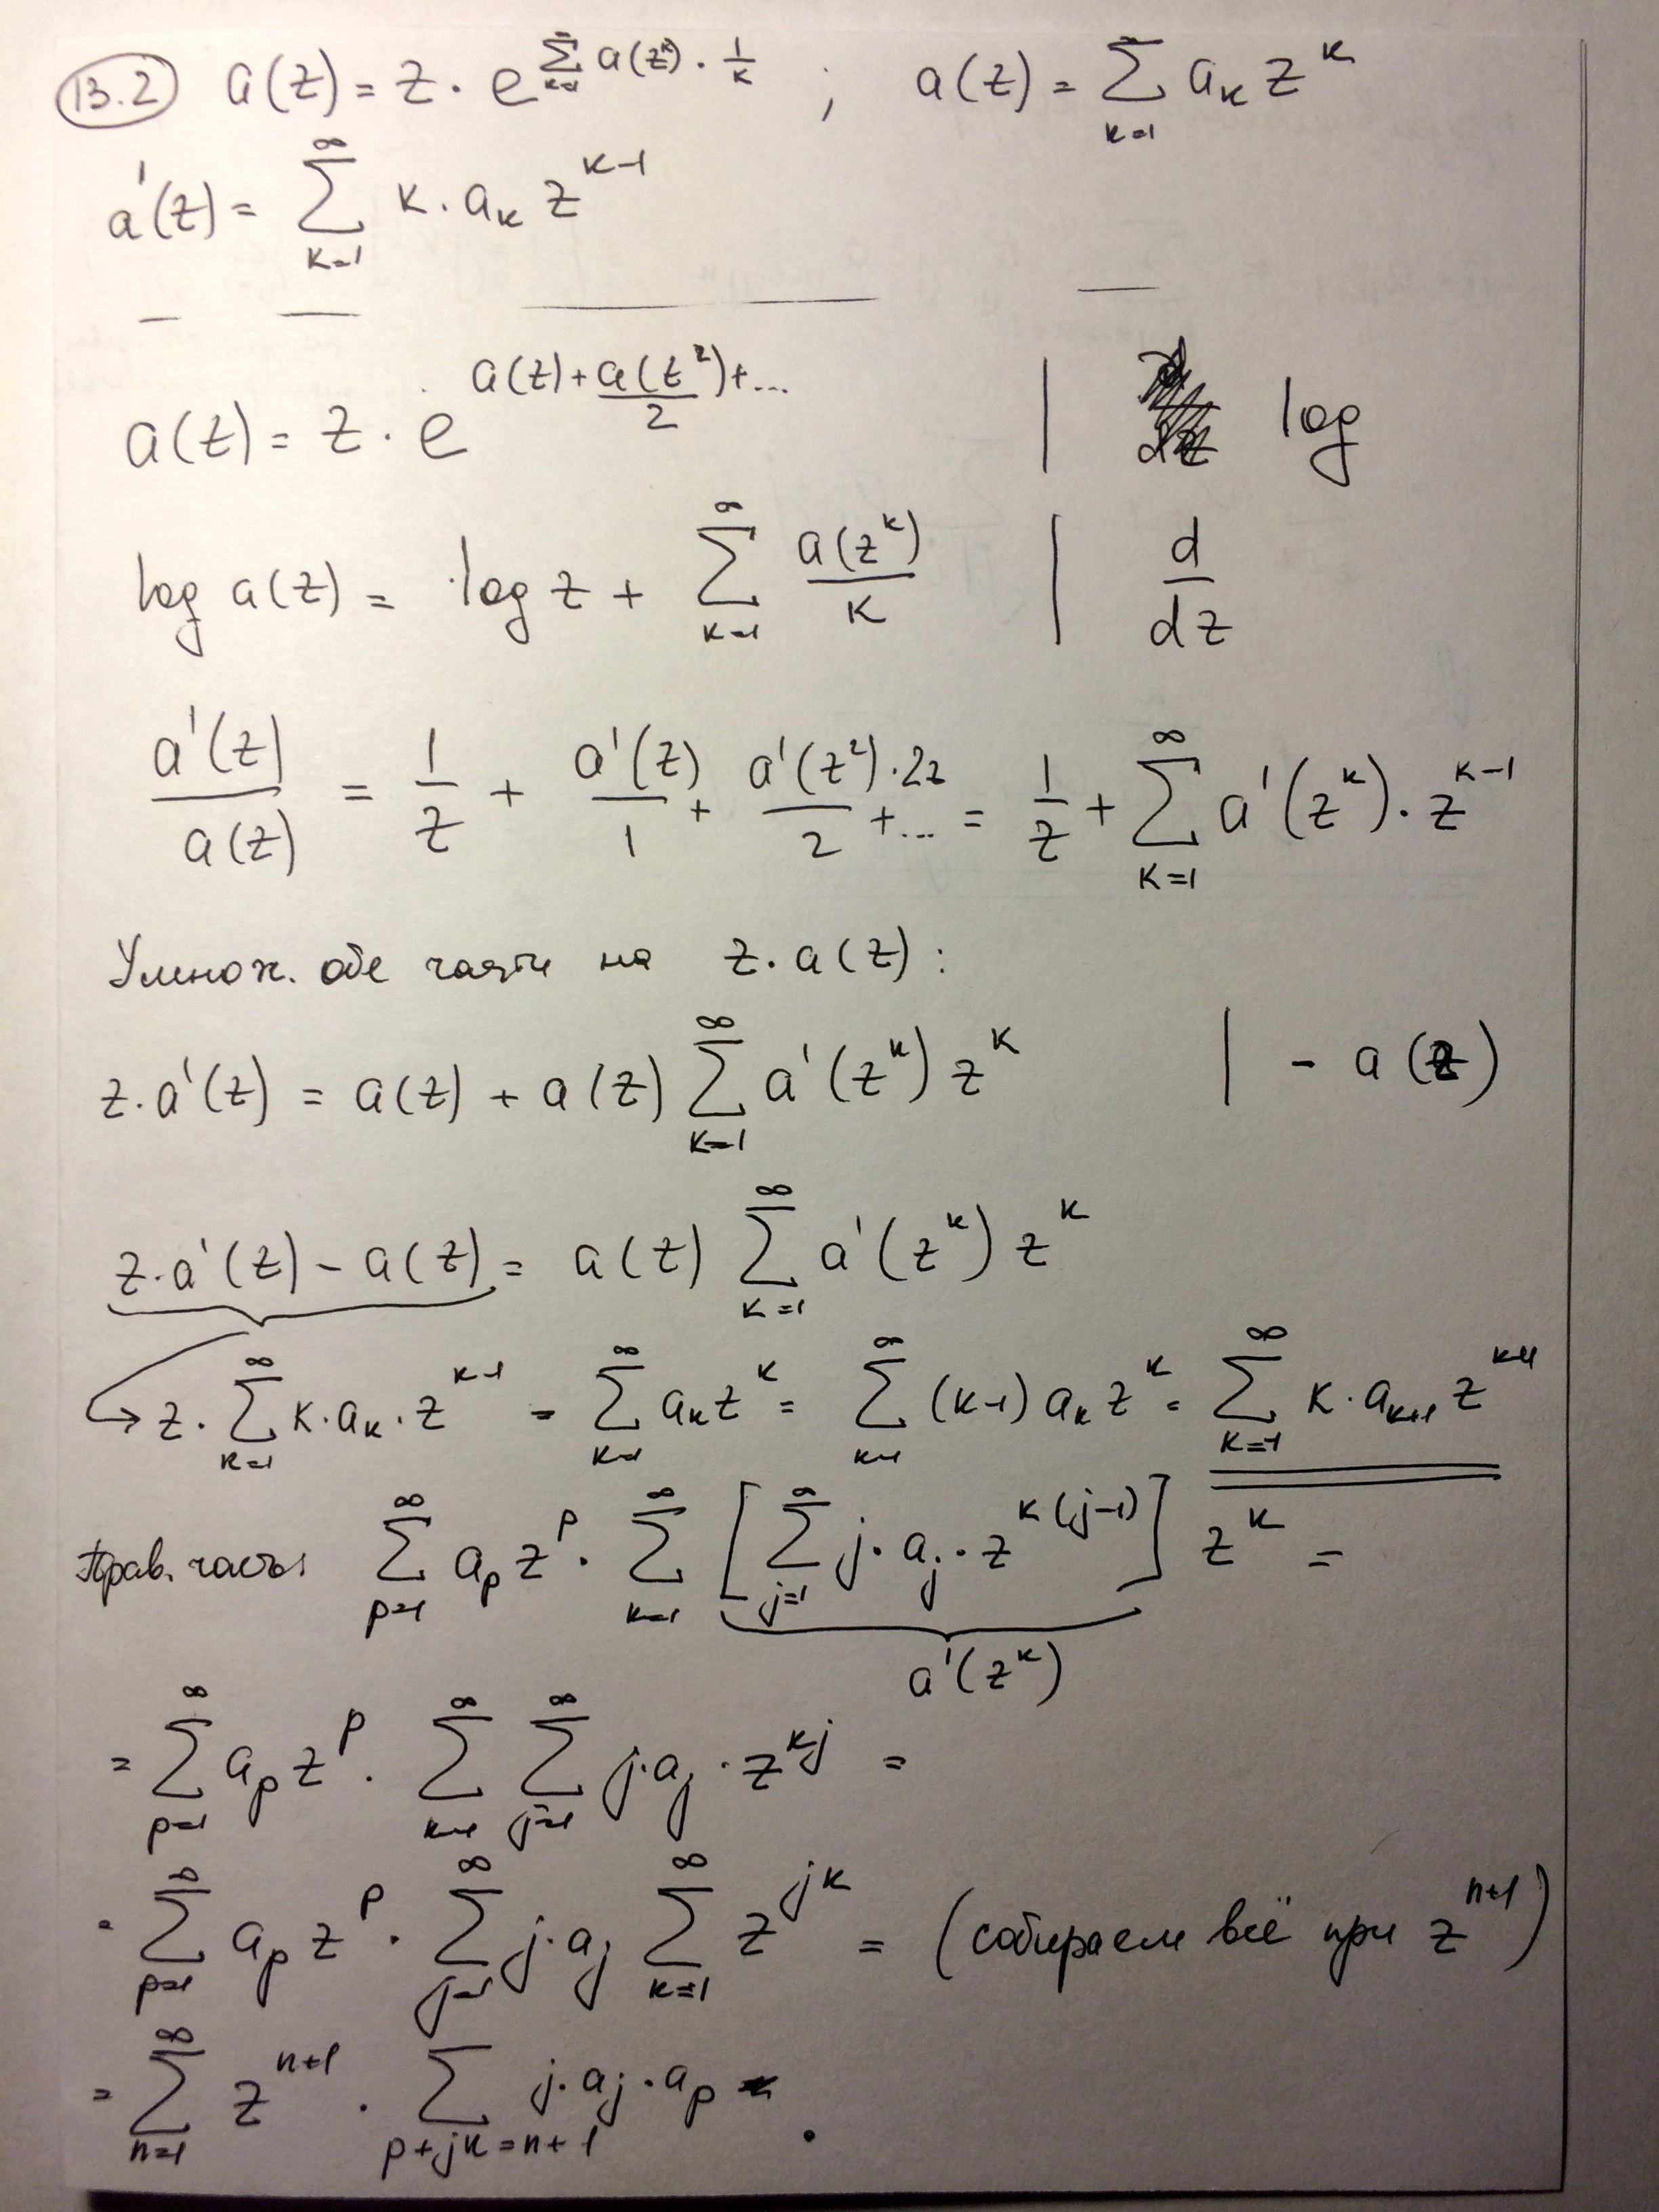 13.2 a(z) = z · e^{∑_{k=1}^{∞} a(z^k) · 1/k} ; a(z) = ∑_{k=1}^{∞} a_k z^k
a'(z) = ∑_{k=1}^{∞} k · a_k z^{k-1}
a(z) = z · e^{a(z) + a(z^2)/2 + ...} | log
log a(z) = log z + ∑_{k=1}^{∞} a(z^k)/k | d/dz
a'(z)/a(z) = 1/z + a'(z)/1 + a'(z^2)·2z/2 + ... = 1/z + ∑_{k=1}^{∞} a'(z^k) · z^{k-1}
Умнож. обе части на z · a(z) :
z · a'(z) = a(z) + a(z) ∑_{k=1}^{∞} a'(z^k) z^k | - a(z)
z · a'(z) - a(z) = a(z) ∑_{k=1}^{∞} a'(z^k) z^k
→ z · ∑_{k=1}^{∞} k · a_k · z^{k-1} - ∑_{k=1}^{∞} a_k z^k = ∑_{k=1}^{∞} (k-1) a_k z^k = ∑_{k=1}^{∞} k · a_{k+1} z^{k+1}
Прав. часть: ∑_{p=1}^{∞} a_p z^p · ∑_{k=1}^{∞} [ ∑_{j=1}^{∞} j · a_j · z^{k(j-1)} ] z^k =
a'(z^k)
= ∑_{p=1}^{∞} a_p z^p · ∑_{k=1}^{∞} ∑_{j=1}^{∞} j · a_j · z^{kj} =
= ∑_{p=1}^{∞} a_p z^p · ∑_{j=1}^{∞} j · a_j ∑_{k=1}^{∞} z^{jk} = (собираем всё при z^{n+1})
= ∑_{n=1}^{∞} z^{n+1} · ∑_{p+jk=n+1} j · a_j · a_p .